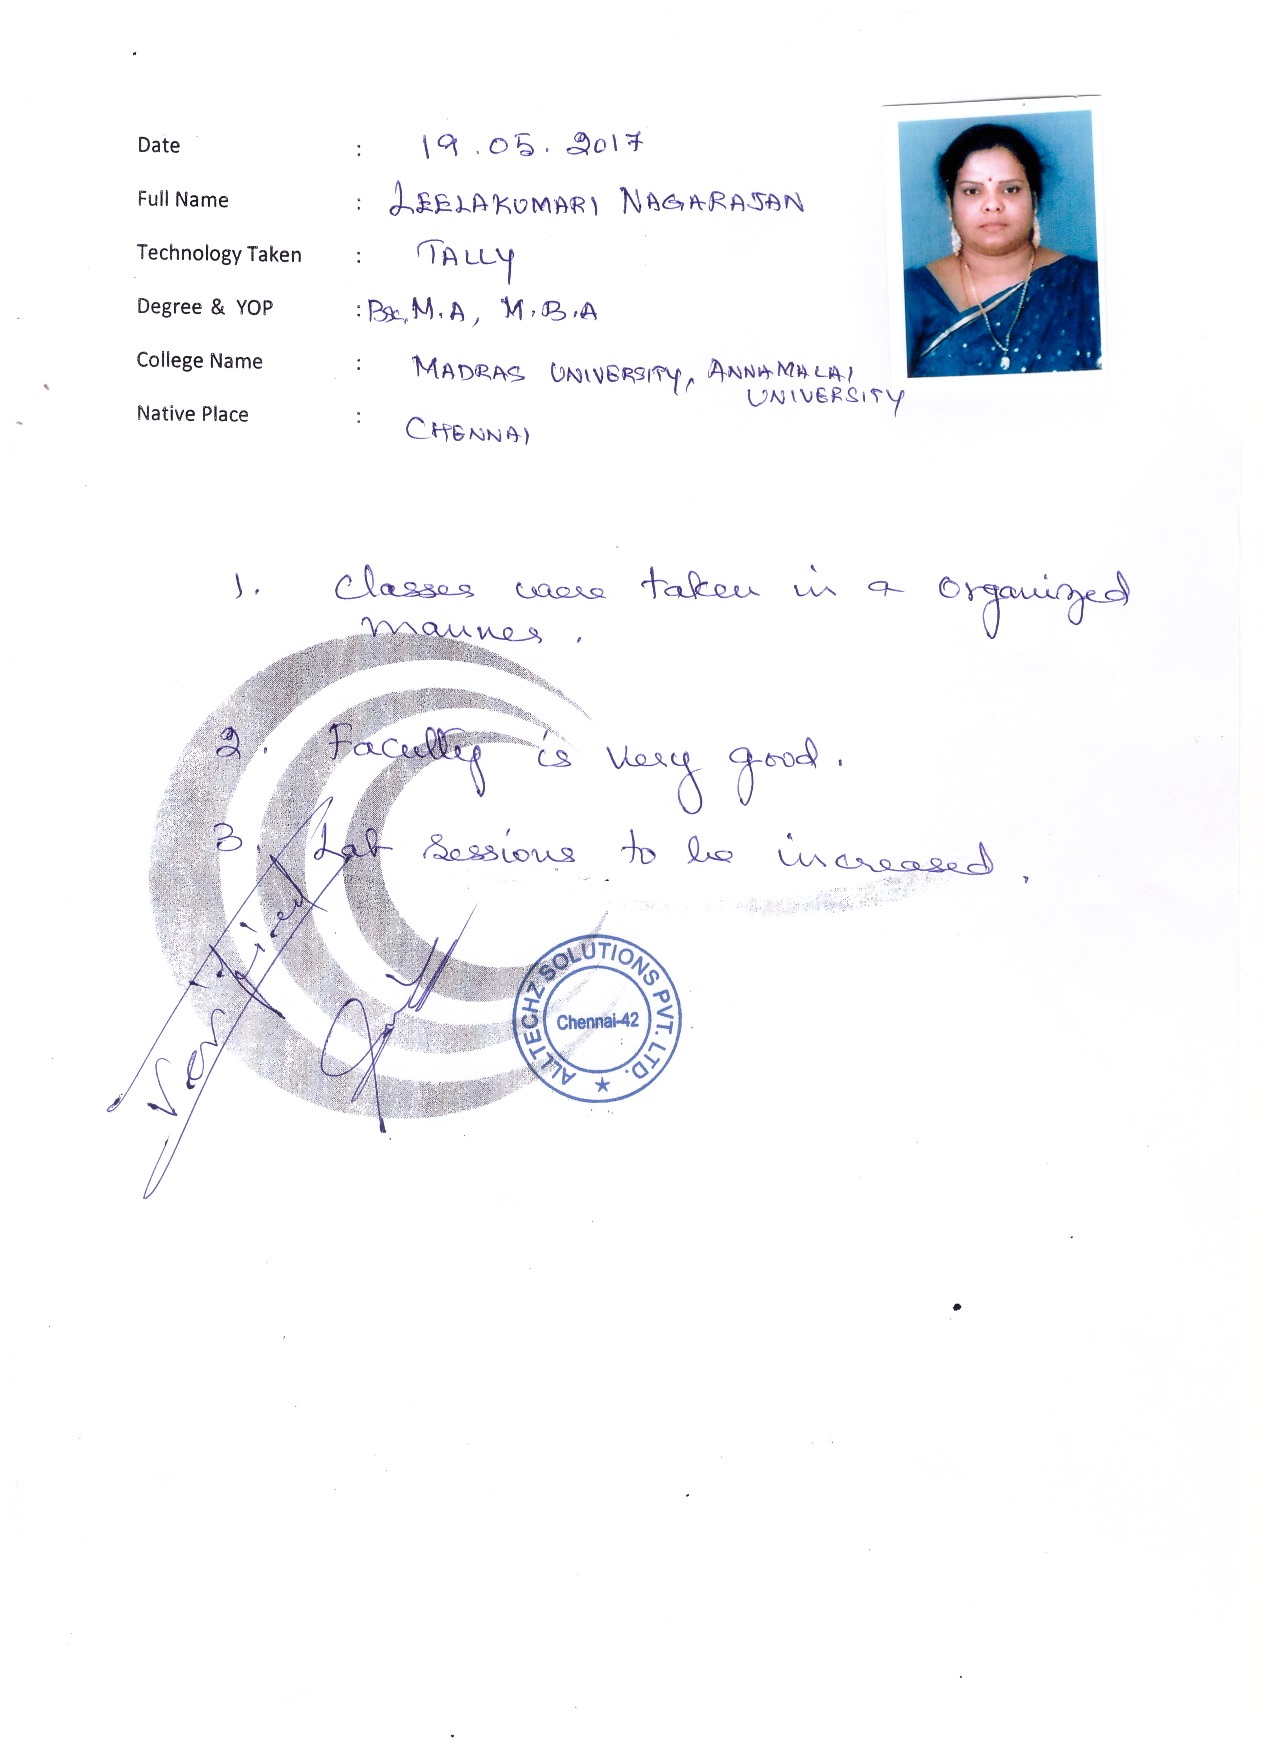 Date : 19.05.2017
Full Name : LEELAKUMARI NAGARAJAN
Technology Taken : TALLY
Degree & YOP : Bsc, M.A, M.B.A
College Name : MADRAS UNIVERSITY, ANNAMALAI
UNIVERSITY
Native Place : CHENNAI
1. Classes were taken in a organized
manner.
2. Faculty is very good.
3. Lab sessions to be increased.
Verified
ALLTECHZ SOLUTIONS PVT. LTD.
Chennai-42